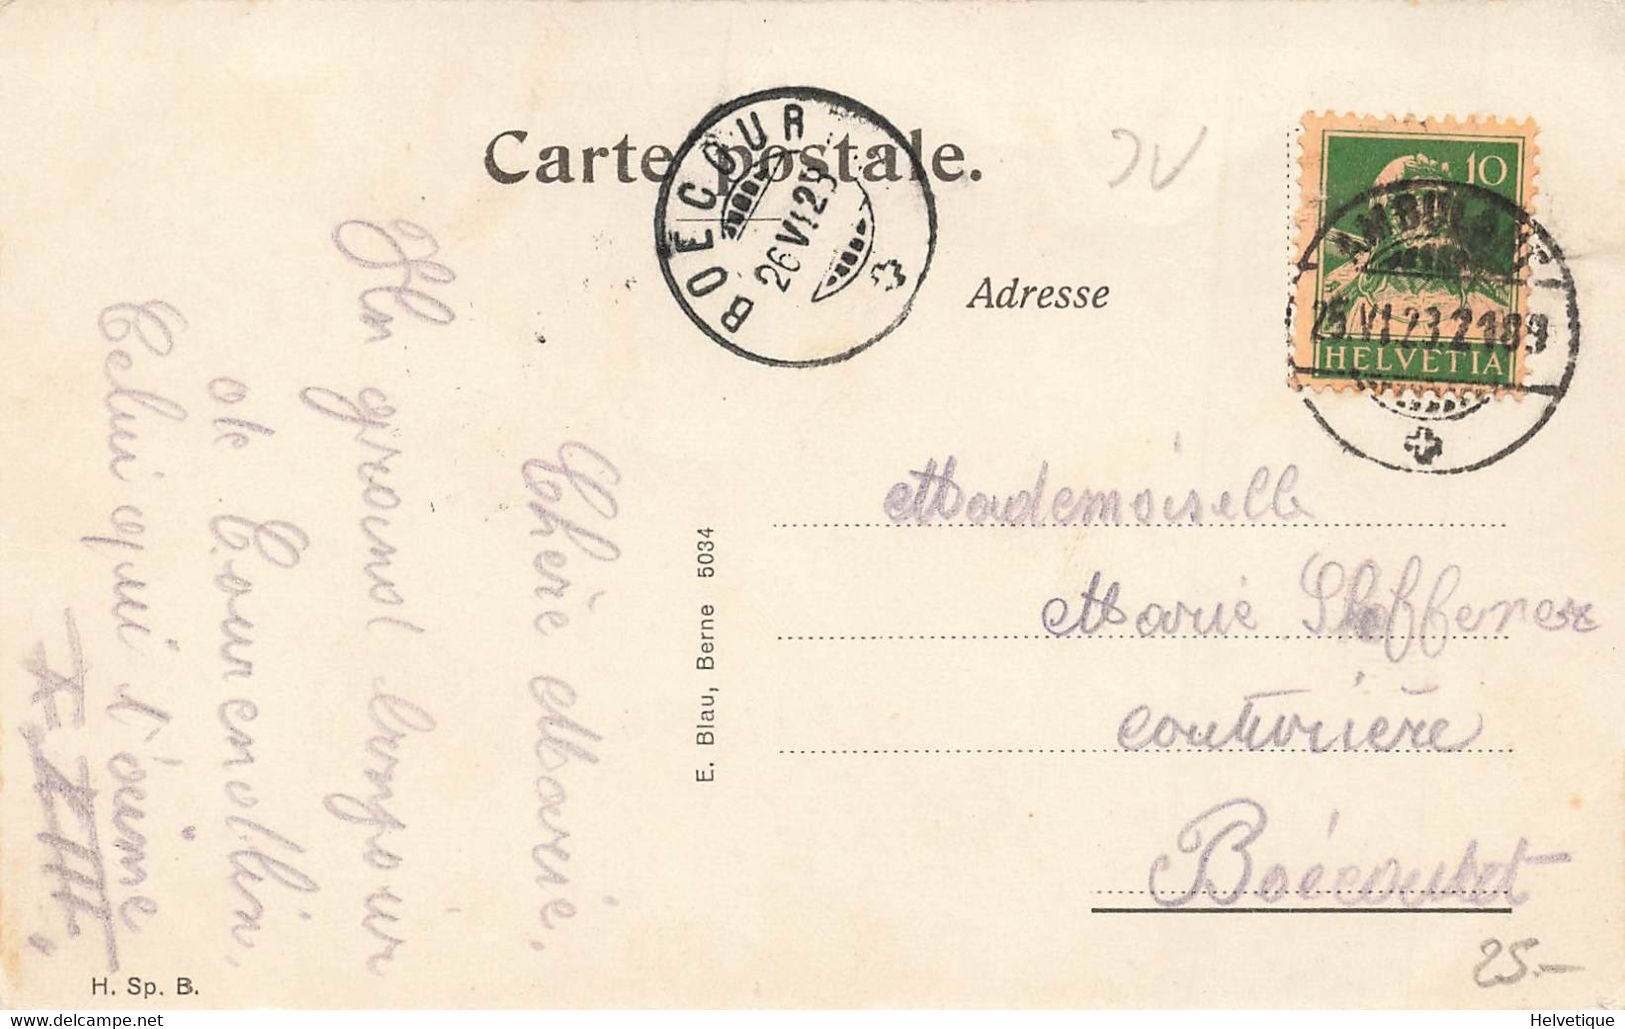 Carte postale.
BOECOURT
26 VI 23
Adresse
10
HELVETIA
AMBULANT
25.VI.23.2189
Chère Marie,
Un grand bonjour
de Courcenollin,
Celui qui t'aime
Mademoiselle
Marie
couturière
Boécourt
E. Blau, Berne 5034
H. Sp. B.
25.-
www.delcampe.net
Helvetique